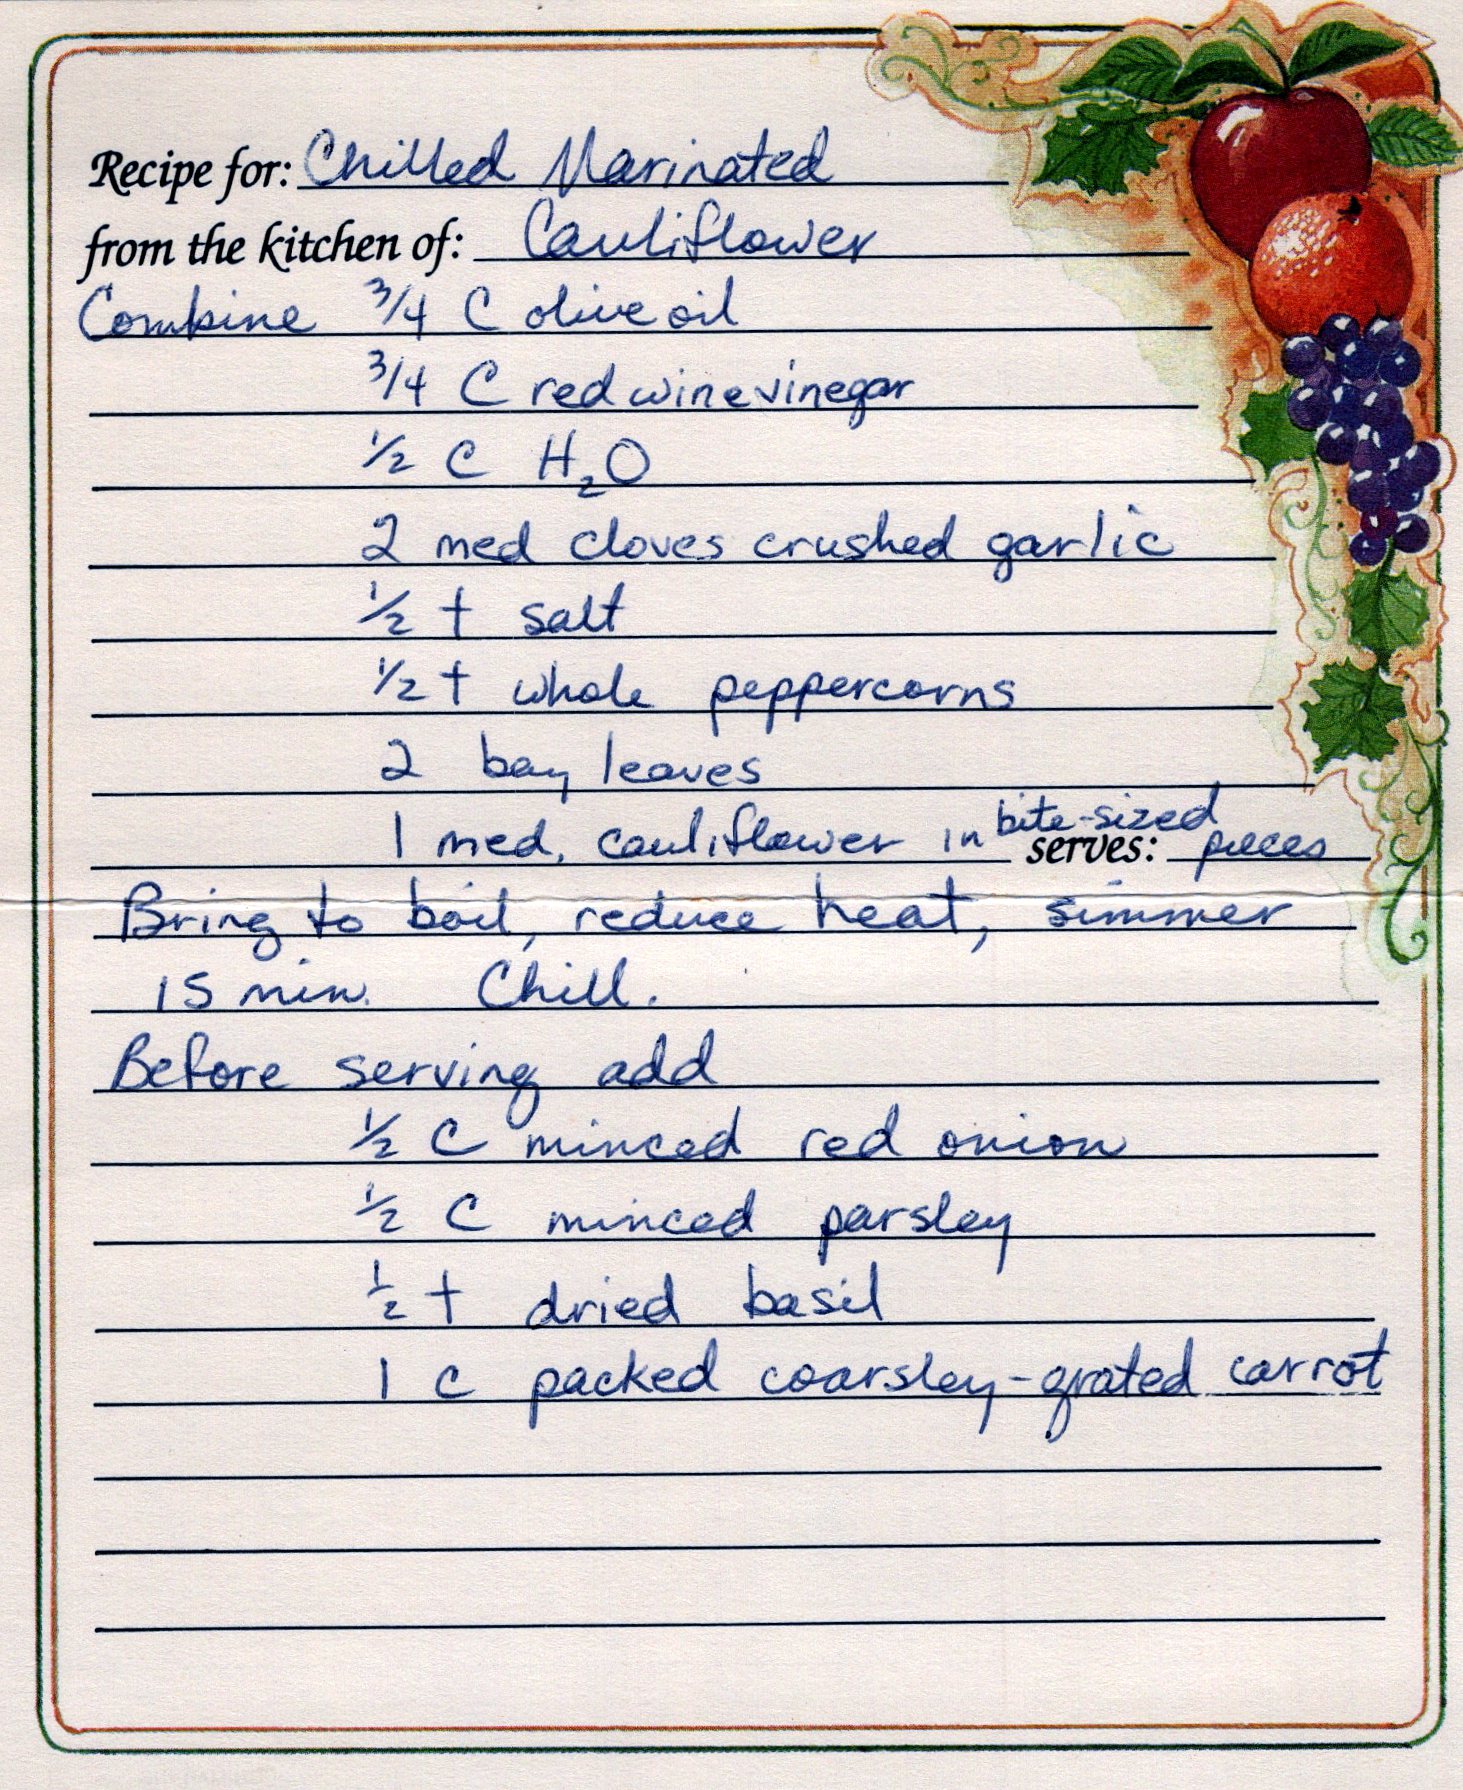 Recipe for: Chilled Marinated
from the kitchen of: Cauliflower
Combine 3/4 C olive oil
3/4 C red wine vinegar
1/2 C H₂O
2 med cloves crushed garlic
1/2 t salt
1/2 t whole peppercorns
2 bay leaves
1 med. cauliflower in bite-sized
serves: pieces
Bring to boil, reduce heat, simmer
15 min. Chill.
Before serving add
1/2 C minced red onion
1/2 C minced parsley
1/2 t dried basil
1 C packed coarsley-grated carrot